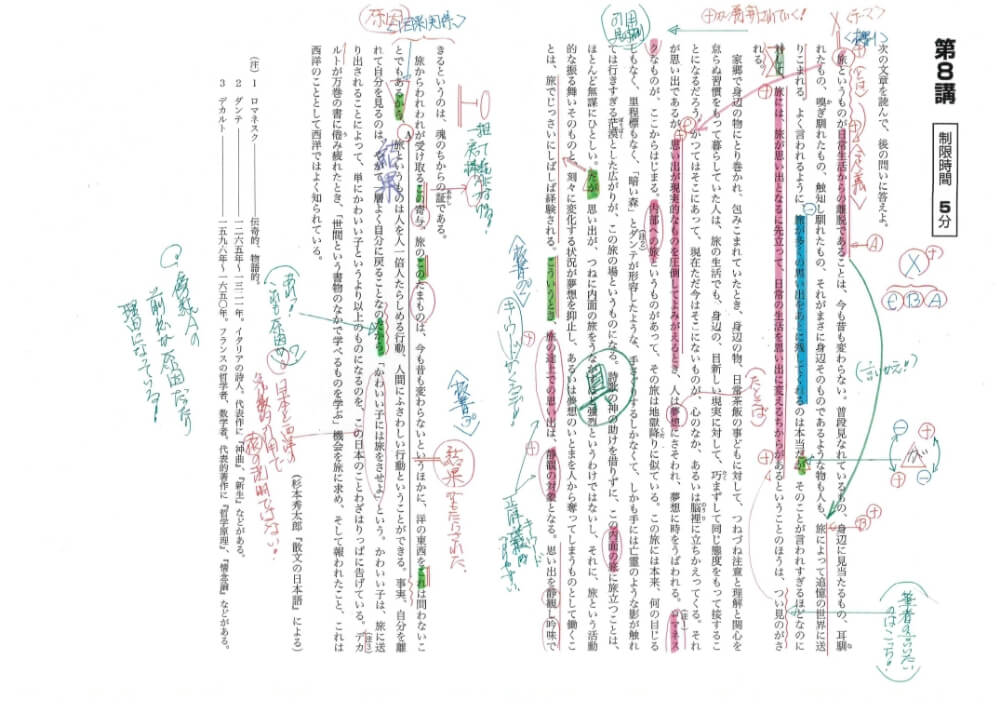 第8講
制限時間 5分
次の文章を読んで、後の問いに答えよ。
旅というものが日常生活からの離脱であることは、今も昔も変わらない。普段見なれているもの、身辺に見当たるもの、耳馴
れたもの、嗅ぎ馴れたもの、触知し馴れたもの、それがまさに身辺そのものであるような物も人も、旅によって追憶の世界に送
りこまれる。よく言われるように、旅が多くの思い出をあとに残してくれるのは本当だが、そのことが言われすぎるほどなのに
対して、旅には、旅が思い出となるに先立って、日常の生活を思い出に変えるちからがあるということのほうは、つい見のがさ
れる。
家郷で身辺の物にとり巻かれ、包みこまれていたとき、身辺の物、日常茶飯の事どもに対して、つねづね注意と理解と関心を
怠らぬ習慣をもって暮らしていた人は、旅の生活でも、身辺の、目新しい現実に対して、巧まずして同じ態度をもって接するこ
とになるだろう。かつてはそこにあって、現在ただ今はそこにないものが、心のなか、あるいは脳裡に立ちかえってくる。それ
が思い出であるが、思い出が現実的なものを圧倒してよみがえるとき、人は夢想にさそわれ、夢想に時をうばわれる。ロマネス
クなものが、ここからはじまる。内部への旅というものがあって、その旅は地獄降りに似ている。この旅には本来、何の目じる
しもなく、里程標もなく、「暗い森」とダンテが形容したような、手さぐりするしかなくて、しかも手には亡霊のような影が触れ
ては行きすぎる茫漠とした広がりが、この旅の場というものになる。詩歌の神の助けを借りずに、この内面の旅に旅立つことは、
ほとんど無謀にひとしい。だが、思い出が、つねに内面の旅をうながすほど強烈というわけではないし、それに、旅という活動
的な振る舞いそのものと、刻々に変化する状況が夢想を抑止し、あるいは夢想のいとまを人から奪ってしまうものとして働くこ
とは、旅でじっさいにしばしば経験される。こういうとき、旅の途上での思い出は、静観の対象となる。思い出を静観し吟味で
きるというのは、魂のちからの証である。
旅からわれわれが受け取るこの寄与、旅のこのたまものは、今も昔も変わらないというほかに、洋の東西をこれは問わないこ
とでもあるから、旅というものは人を人一倍人たらしめる行動、人間にふさわしい行動ということができる。事実、自分を離
れて自分を見るのは、一層よく自分に戻ることなのだから。「かわいい子には旅をさせよ」という。かわいい子は、旅に送
り出されることによって、単にかわいい子というより以上のものになるのを、この日本のことわざはりっぱに告げている。デカ
ルトが万巻の書に倦み疲れたとき、「世間という書物のなかで学べるものを学ぶ」機会を旅に求め、そして報われたこと、これは
西洋のこととして西洋ではよく知られている。
(杉本秀太郎『散文の日本語』による)
(注) 1 ロマネスク――伝奇的、物語的。
2 ダンテ――一二六五年～一三二一年。イタリアの詩人。代表作に『神曲』、『新生』などがある。
3 デカルト――一五九六年～一六五〇年。フランスの哲学者、数学者。代表的著作に『哲学原理』、『情念論』などがある。
原因
〈因果関係〉
結果
たとえば
(言いかえ!!)
筆者の言いたいのはこっち!